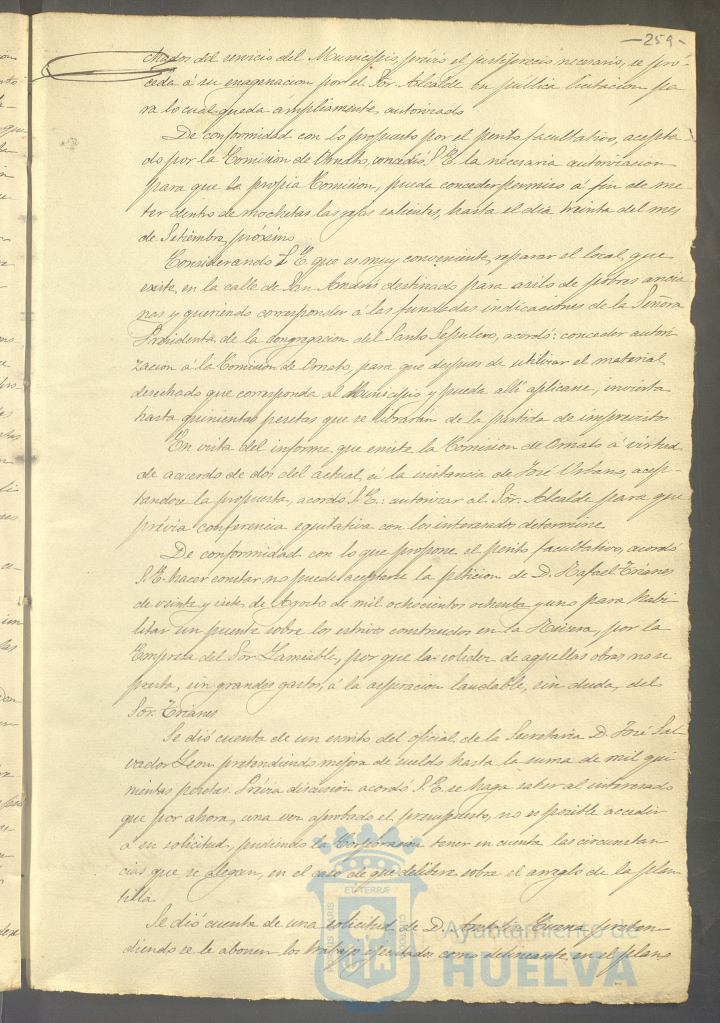 -259-
chados del servicio del Municipio, previo el justiprecio necesario, se pro-
ceda á su enagenacion por el Sor. Alcalde en publica licitacion pa
ra lo cual queda ampliamente autorizado
De conformidad con lo propuesto por el perito facultativo, acepta
do por la Comision de Ornato, concedió S. E. la necesaria autorizacion
para que la propia Comision, pueda conceder permiso á fin de me-
ter dentro de mochetas las rejas salientes, hasta el dia treinta del mes
de Setiembre próximo
Considerando S. E. que es muy conveniente, reparar el local, que
existe en la calle de San Andrés destinado para asilo de pobres ancia
nas y queriendo corresponder á las fundadas indicaciones de la Señora
Presidenta de la congregacion del Santo Sepulcro, acordó: conceder autori
zacion á la Comision de Ornato, para que despues de utilizar el material
desechado que corresponda al Municipio y pueda allí aplicarse, invierta
hasta quinientas pesetas que se librarán de la partida de imprevistos
En vista del informe que emite la Comision de Ornato á virtud
de acuerdo de dos del actual, á la instancia de José Urbano, acep-
tandose la propuesta, acordó S. E.: autorizar al Sor. Alcalde para que
prévia conferencia equitativa con los interesados determine
De conformidad con lo que propone el perito facultativo, acordó
S. E. hacer constar no puede aceptarse la peticion de D. Rafael Trianes
de veinte y siete de Agosto de mil ochocientos ochenta y uno para habi
litar un puente sobre los estrivos construidos en la por la
Empresa del Sor. Lamiable, por que la solidez de aquellas obras no se
presta, sin grandes gastos, á la aspiracion laudable, sin duda, del
Sor. Trianes
Se dió cuenta de un escrito del oficial de la Secretaria D. José Sal
vador Leon pretendiendo mejora de sueldo hasta la suma de mil qui
nientas pesetas. Prévia discusion acordó S. E. se haga saber al interesado
que por ahora, una vez aprobado el presupuesto, no es posible acceder
á su solicitud, pudiendo la Corporacion tener en cuenta las circunstan
cias que se alegan, en el caso de que delibere sobre el arreglo de la plan
tilla.
Se dió cuenta de una solicitud de D. preten
diendo se le abonen los trabajos ejecutados como delineante en el plano
ET TERRÆ
Ayuntamiento de
HUELVA